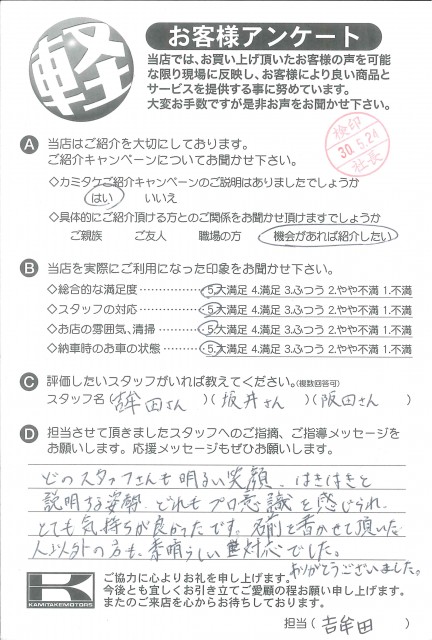 軽
お客様アンケート
当店では、お買い上げ頂いたお客様の声を可能
な限り現場に反映し、お客様により良い商品と
サービスを提供する事に努めています。
大変お手数ですが是非お声をお聞かせ下さい。
検印
30.5.24
社長
A 当店はご紹介を大切にしております。
ご紹介キャンペーンについてお聞かせ下さい。
◇カミタケご紹介キャンペーンのご説明はありましたでしょうか
はい いいえ
◇具体的にご紹介頂ける方とのご関係をお聞かせ頂けますでしょうか
ご親族 ご友人 職場の方 機会があれば紹介したい
B 当店を実際にご利用になった印象をお聞かせ下さい。
◇総合的な満足度‥‥‥‥5.大満足 4.満足 3.ふつう 2.やや不満 1.不満
◇スタッフの対応‥‥‥‥5.大満足 4.満足 3.ふつう 2.やや不満 1.不満
◇お店の雰囲気、清掃‥‥5.大満足 4.満足 3.ふつう 2.やや不満 1.不満
◇納車時のお車の状態‥‥5.大満足 4.満足 3.ふつう 2.やや不満 1.不満
C 評価したいスタッフがいれば教えてください。(複数回答可)
スタッフ名(吉牟田さん)(坂井さん)(阪田さん)
D 担当させて頂きましたスタッフへのご指摘、ご指導メッセージを
お願いします。応援メッセージもぜひお願いします。
どのスタッフさんも明るい笑顔、はきはきと
説明する姿勢、どれもプロ意識を感じられ
とても気持ちが良かったです。名前を書かせて頂いた
人以外の方も、素晴らしい対応でした。
ありがとうございました。
K
KAMITAKEMOTORS
ご協力に心よりお礼を申し上げます。
今後とも宜しくお引き立てご愛顧の程お願い申し上げます。
またのご来店を心からお待ちしております。
担当(吉牟田)